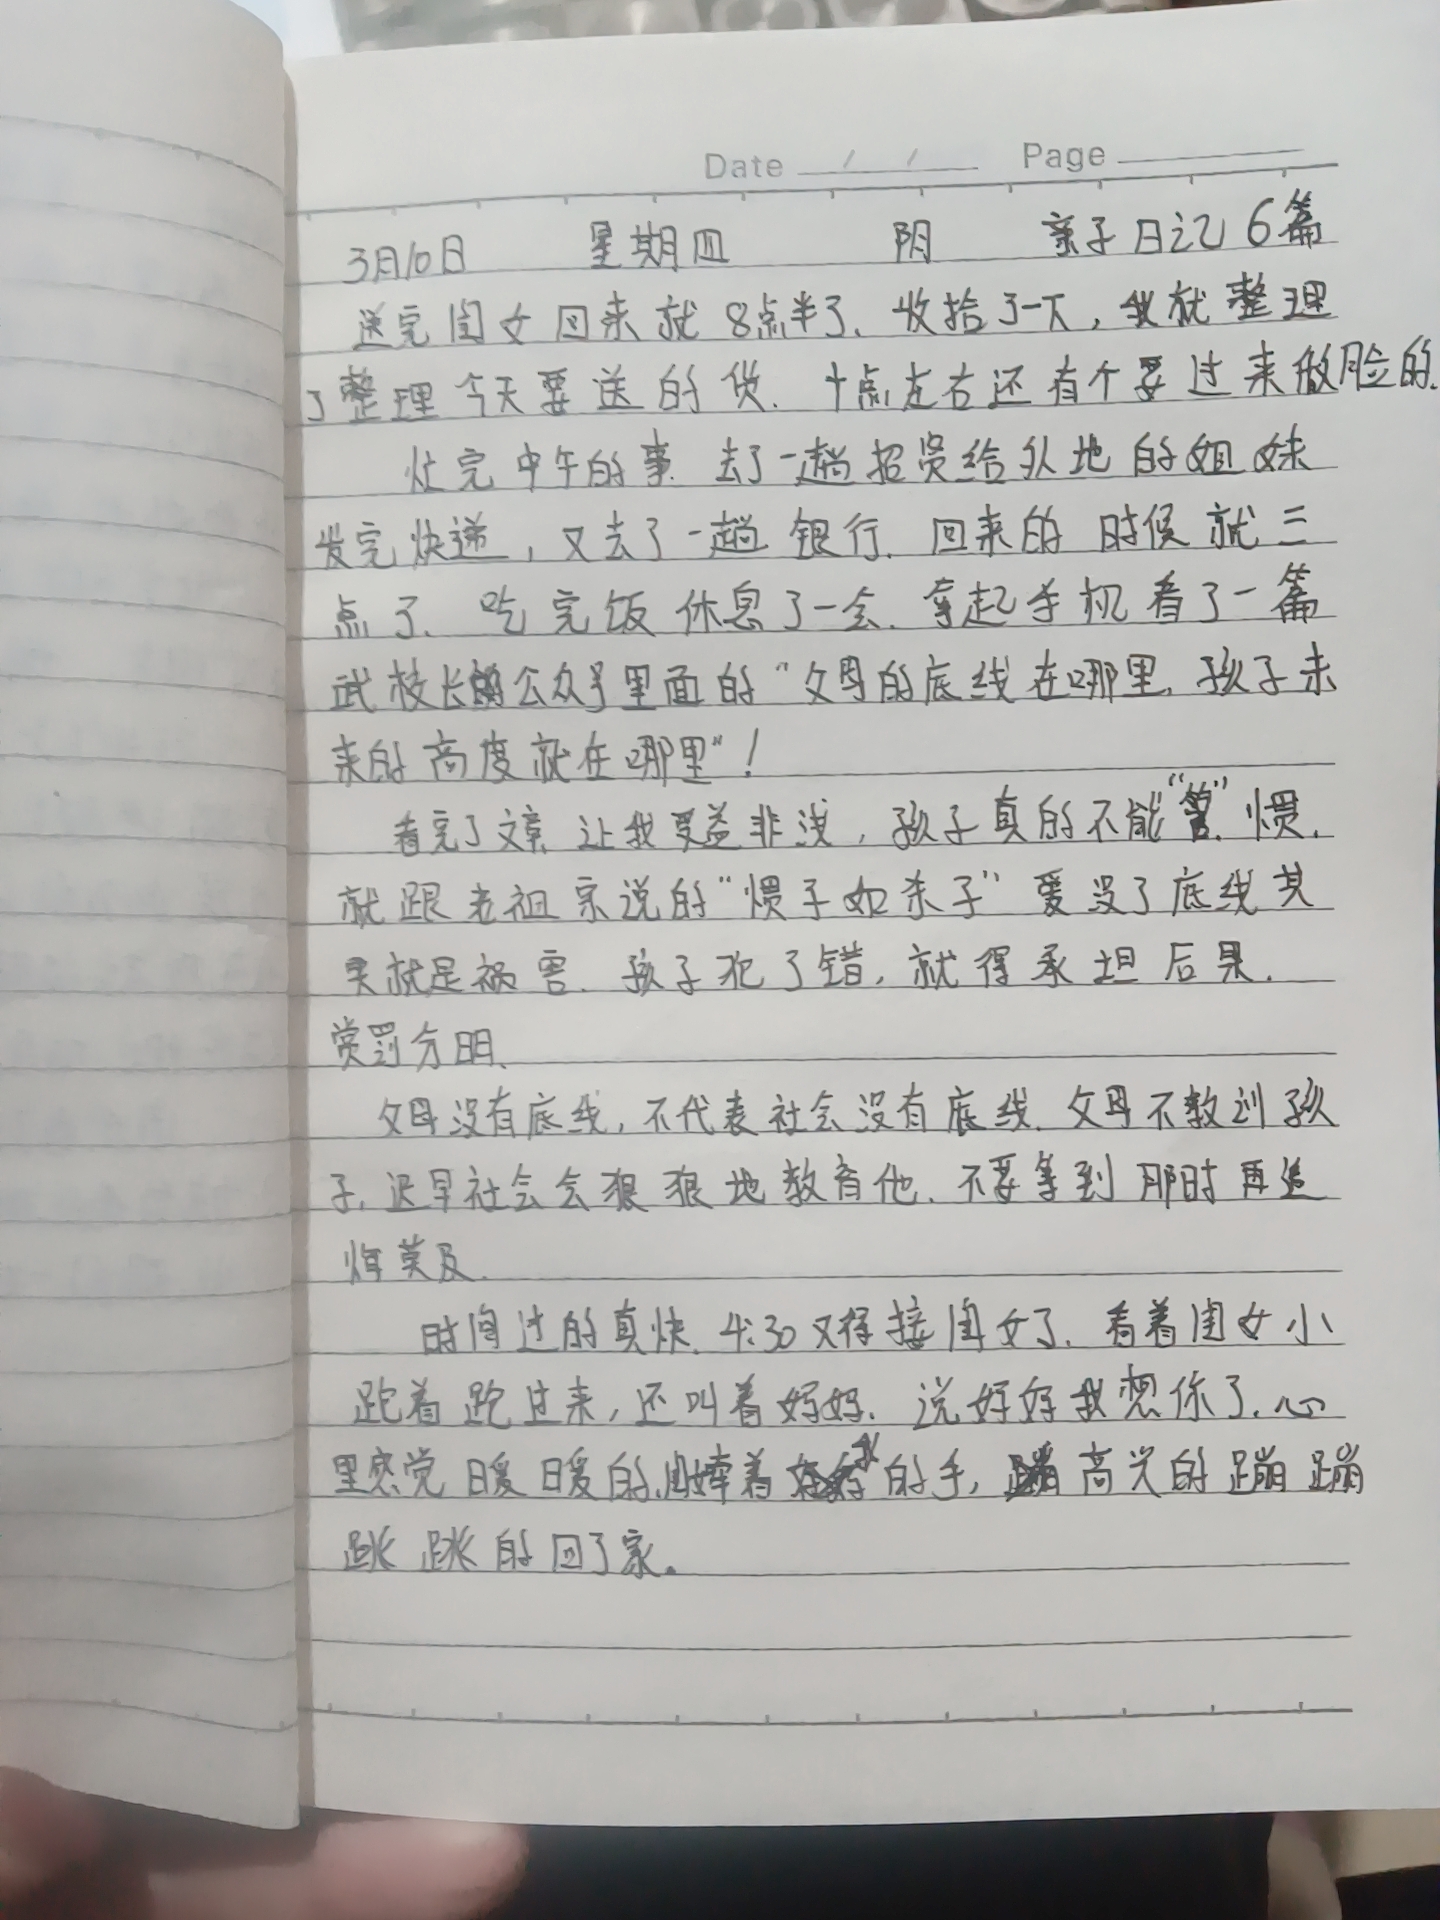 Date / / Page
3月10日 星期四 阴 亲子日记6篇
送完闺女回来就8点半了.收拾了一下,我就整理
了整理今天要送的货.十点左右还有个要过来做脸的.
忙完中午的事.去了一趟招贤给外地的姐妹
发完快递,又去了一趟银行.回来的时候就三
点了.吃完饭休息了一会.拿起手机看了一篇
武校长的公众号里面的“父母的底线在哪里.孩子未
来的高度就在哪里”!
看完了文章.让我受益非浅,孩子真的不能“管”.惯.
就跟老祖宗说的“惯子如杀子”爱没了底线其
实就是祸害.孩子犯了错,就得承担后果.
赏罚分明.
父母没有底线,不代表社会没有底线.父母不教训孩
子.迟早社会会狠狠地教育他.不要等到那时再追
悔莫及.
时间过的真快.4:30又得接闺女了.看着闺女小
跑着跑过来,还叫着妈妈.说好好我想你了.心
里感觉暖暖的.牵着我的手,高兴的蹦蹦
跳跳的回了家.